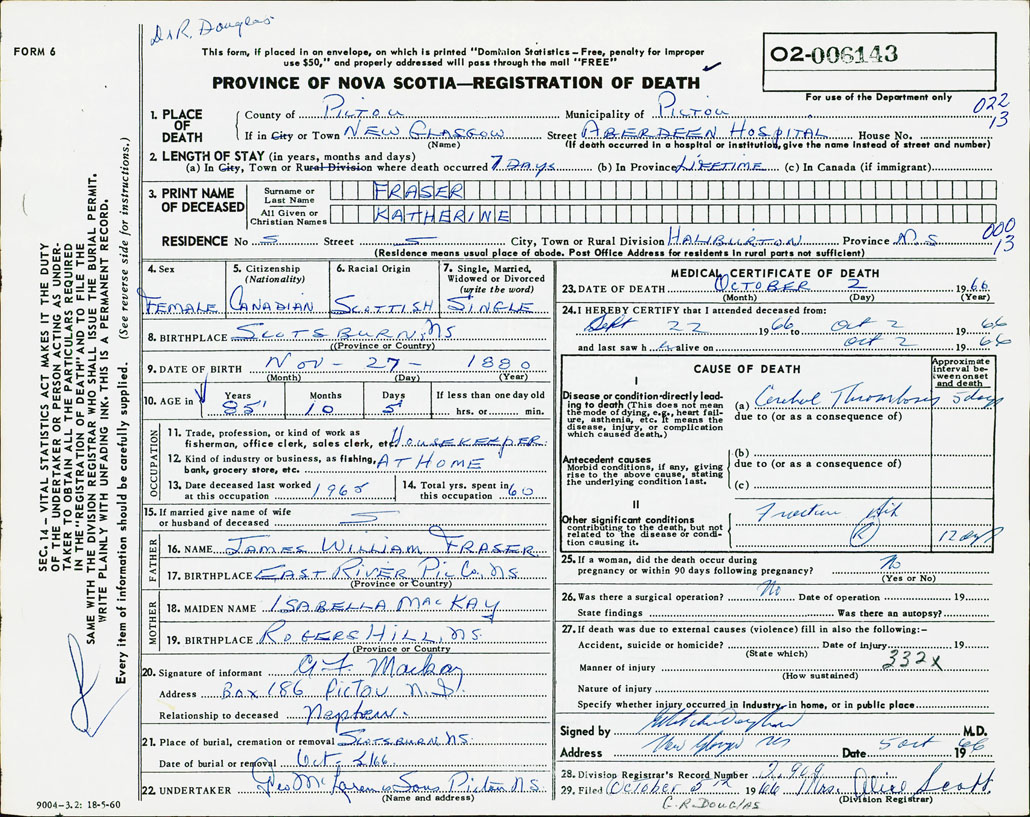 Dr R. Douglas
FORM 6
This form, if placed in an envelope, on which is printed "Dominion Statistics – Free, penalty for improper
use $50," and properly addressed will pass through the mail "FREE"
O2-006143
PROVINCE OF NOVA SCOTIA—REGISTRATION OF DEATH
For use of the Department only
022
13
1. PLACE OF DEATH
County of PICTOU Municipality of PICTOU
If in City or Town NEW GLASGOW Street ABERDEEN HOSPITAL House No.
(Name) (If death occurred in a hospital or institution, give the name instead of street and number)
2. LENGTH OF STAY (in years, months and days)
(a) In City, Town or Rural Division where death occurred 7 DAYS (b) In Province LIFETIME (c) In Canada (if immigrant)
3. PRINT NAME OF DECEASED
Surname or Last Name FRASER
All Given or Christian Names KATHERINE
RESIDENCE No S Street S City, Town or Rural Division HALIBURTON Province N.S
000
13
(Residence means usual place of abode. Post Office Address for residents in rural parts not sufficient)
4. Sex FEMALE
5. Citizenship (Nationality) CANADIAN
6. Racial Origin SCOTTISH
7. Single, Married, Widowed or Divorced (write the word) SINGLE
8. BIRTHPLACE SCOTSBURN, NS
(Province or Country)
9. DATE OF BIRTH NOV - 27 - 1880
(Month) (Day) (Year)
10. AGE in Years 85 Months 10 Days 5 If less than one day old
hrs. or min.
OCCUPATION
11. Trade, profession, or kind of work as
fisherman, office clerk, sales clerk, etc. HOUSEKEEPER
12. Kind of industry or business, as fishing,
bank, grocery store, etc. AT HOME
13. Date deceased last worked
at this occupation 1965
14. Total yrs. spent in
this occupation 60
15. If married give name of wife
or husband of deceased S
FATHER
16. NAME JAMES WILLIAM FRASER
17. BIRTHPLACE EAST RIVER PIC Co. NS
(Province or Country)
MOTHER
18. MAIDEN NAME ISABELLA MACKAY
19. BIRTHPLACE ROGERS HILL, NS.
(Province or Country)
20. Signature of informant G F Mackay
Address Box 186 Pictou N.S.
Relationship to deceased Nephew.
21. Place of burial, cremation or removal SCOTSBURN NS.
Date of burial or removal Oct- 5/66.
22. UNDERTAKER Geo McLaren & Sons Pictou N.S.
(Name and address)
MEDICAL CERTIFICATE OF DEATH
23. DATE OF DEATH OCTOBER 2 1966
(Month) (Day) (Year)
24. I HEREBY CERTIFY that I attended deceased from:
Sept 22 1966 to Oct 2 1966
and last saw h alive on Oct 2 1966
CAUSE OF DEATH
Approximate interval between onset and death
I
Disease or condition directly leading to death (This does not mean
the mode of dying, e.g., heart failure, asthenia, etc. It means the
disease, injury, or complication
which caused death.)
(a) Cerebral Thrombosis 5 days
due to (or as a consequence of)
Antecedent causes
Morbid conditions, if any, giving
rise to the above cause, stating
the underlying condition last.
(b)
due to (or as a consequence of)
(c)
II
Other significant conditions
contributing to the death, but not
related to the disease or condition causing it.
Fracture Hip
(R) 12 days
25. If a woman, did the death occur during
pregnancy or within 90 days following pregnancy? No
(Yes or No)
26. Was there a surgical operation? No Date of operation 19
State findings Was there an autopsy?
27. If death was due to external causes (violence) fill in also the following:–
Accident, suicide or homicide? Date of injury 19
(State which) 332X
Manner of injury
(How sustained)
Nature of injury
Specify whether injury occurred in industry, in home, or in public place
Signed by M.D.
Address New Glasgow NS Date 5 Oct 1966
28. Division Registrar's Record Number 2,969
29. Filed October 5th 1966 Mrs. Alice Scott
G.R. DOUGLAS (Division Registrar)
SEC. 14 – VITAL STATISTICS ACT MAKES IT THE DUTY
OF THE UNDERTAKER OR PERSON ACTING AS UNDERTAKER TO OBTAIN ALL THE PARTICULARS REQUIRED
IN THE "REGISTRATION OF DEATH" AND TO FILE THE
SAME WITH THE DIVISION REGISTRAR WHO SHALL ISSUE THE BURIAL PERMIT.
WRITE PLAINLY WITH UNFADING INK. THIS IS A PERMANENT RECORD.
Every item of information should be carefully supplied. (See reverse side for instructions.)
9004–3.2: 18-5-60